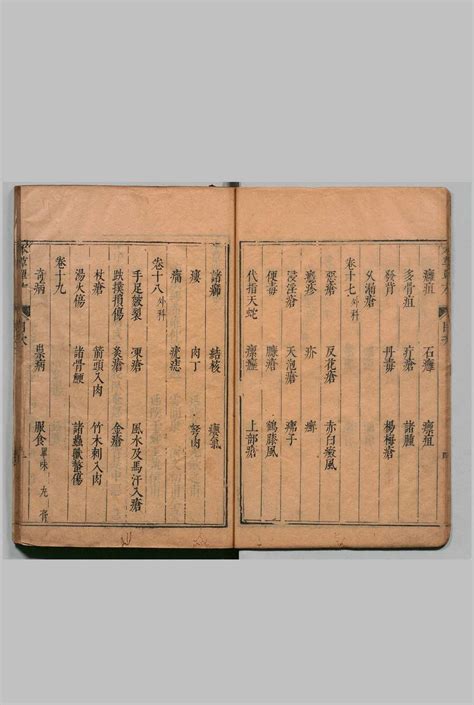 癰疽 石癰 瘭疽
多骨疽 疔瘡 諸腫
發背 丹毒 楊梅瘡
乆漏瘡
卷十七 外科
惡瘡 反花瘡 赤白癜風
癮疹 疥 癬
浸淫瘡 天泡瘡
便毒 臁瘡 鶴膝風
代指天蛇 瘰癧 上部瘡
結核 癭氣
肉丁 努肉
疣痣
卷十八 外科
手足皴裂 凍瘡 風水及馬汗入瘡
跌撲損傷 灸瘡 金瘡
杖瘡 箭頭入肉 竹木刺入肉
湯火傷 諸骨鯁 諸蟲獸螫傷
卷十九
奇病 祟病 服食 單味 丸膏